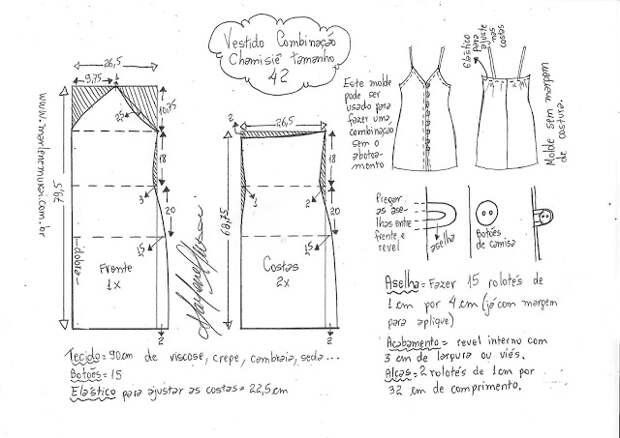 Vestido Combinação
Chamisiê Tamanho
42
26,5
9,75
25
10,75
18
3
20
1,5
2
79,5
dobra
Frente
1x
www.marlenemukai.com.br
2
26,5
18
1
2
20
1,5
2
68,75
Costas
2x
Este molde
pode ser
usado para
fazer uma
combinação
sem o
abotoa-
mento
Elástico
para
ajuste
nas
costas
Molde sem margem
de costura.
Pregar
as ase-
lhas entre
frente e
revel
aselha
Botões
de camisa
Aselha = Fazer 15 rolotés de
1 cm por 4 cm (já com margem
para aplique)
Acabamento = revel interno com
3 cm de largura ou viés.
Alças = 2 rolotés de 1 cm por
32 cm de comprimento.
Tecido = 90cm de viscose, crepe, cambraia, seda...
Botões = 15
Elástico para ajustar as costas = 22,5 cm